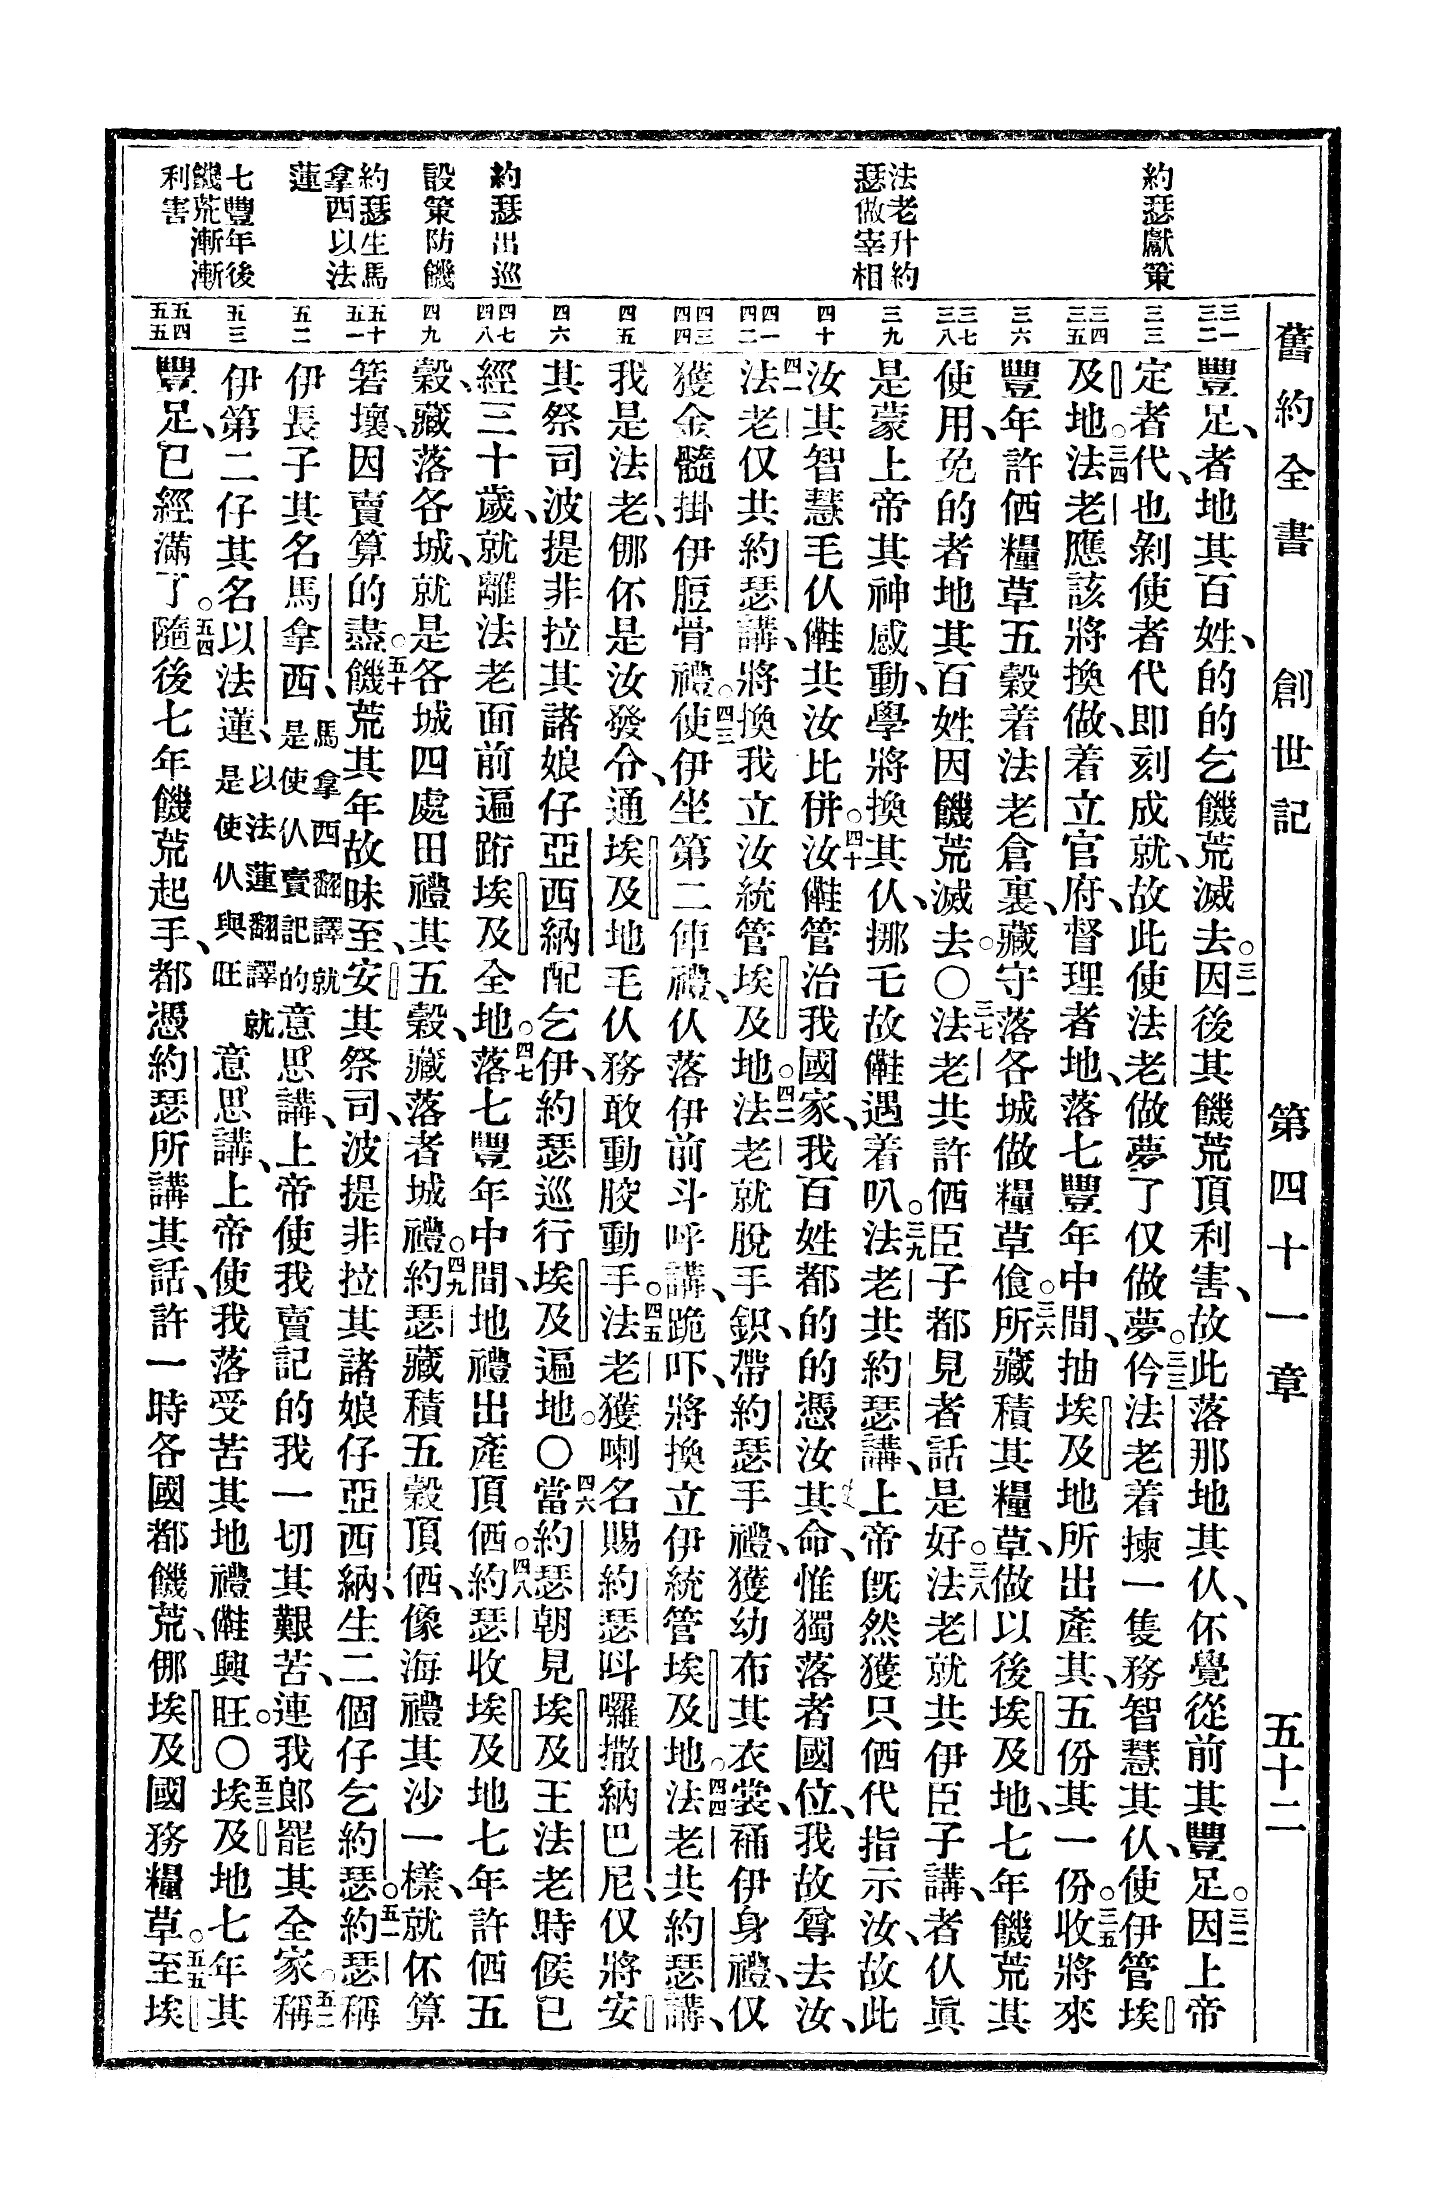 舊約全書 創世記 第四十一章 五十二
約瑟獻策
法老升約
瑟做宰相
約瑟出巡
設策防饑
約瑟生馬
拿西以法
蓮
七豐年後
饑荒漸漸
利害
三一 三二 三三 三四 三五 三六 三七 三八 三九 四十 四一 四二 四三 四四 四五 四六 四七 四八 四九 五十 五一 五二 五三 五四 五五
豐足、者地其百姓、的的乞饑荒滅去。三一因後其饑荒頂利害、故此落那地其仈、伓覺從前其豐足。三二因上帝
定者代、也剝使者代即刻成就、故此使法老做夢了仅做夢。三三仱法老着揀一隻務智慧其仈、使伊管埃
及地。三四法老應該將換做、着立官府、督理者地、落七豐年中間、抽埃及地所出產其、五份其一份。三五收將來
豐年許㑚糧草五穀着法老倉裏、藏守落各城做糧草飱。三六所藏積其糧草、做以後埃及地、七年饑荒其
使用、免的者地其百姓因饑荒滅去。〇三七法老共許㑚臣子都見者話是好。三八法老就共伊臣子講、者仈眞
是蒙上帝其神感動、學將換其仈、挪毛故𠆧遇着叭。三九法老共約瑟講、上帝旣然獲只㑚代指示汝、故此
汝其智慧毛仈𠆧共汝比併。四十汝𠆧管治我國家、我百姓都的的憑汝其命、惟獨落者國位、我故尊去汝、
四一法老仅共約瑟講、將換我立汝統管埃及地。四二法老就脫手鉙、帶約瑟手禮、獲幼布其衣裳、補伊身禮、仅
獲金髓掛伊脰骨禮。四三使伊坐第二俥禮、仈落伊前斗呼講、跪吓、將換立伊統管埃及地。四四法老共約瑟講、
我是法老、㑚伓是汝發令、通埃及地毛仈務敢動骹動手。四五法老獲喇名賜約瑟呌囉撒納巴尼、仅將安
其祭司波提非拉其諸娘仔亞西納配乞伊、約瑟巡行埃及遍地。〇四六當約瑟朝見埃及王法老時候已
經三十歲、就離法老面前遍跧埃及全地。四七落七豐年中間、地禮出產頂㑚。四八約瑟收埃及地七年許㑚五
穀、藏落各城、就是各城四處田禮其五穀、藏落者城禮。四九約瑟藏積五穀頂㑚、像海禮其沙一樣、就伓算
箬壞、因賣算的盡。五十饑荒其年故昧至、安其祭司、波提非拉其諸娘仔亞西納、生二個仔乞約瑟。五一約瑟稱
伊長子其名馬拿西、馬拿西翻譯就是使仈賣記的意思講、上帝使我賣記的我一切其艱苦、連我郎罷其全家。五二稱
伊第二仔其名以法蓮、以法蓮翻譯就是使仈興旺意思講、上帝使我落受苦其地禮𠆧興旺。〇五三埃及地七年其
豐足、已經滿了。五四隨後七年饑荒起手、都憑約瑟所講其話、許一時各國都饑荒、㑚埃及國務糧草。五五至埃